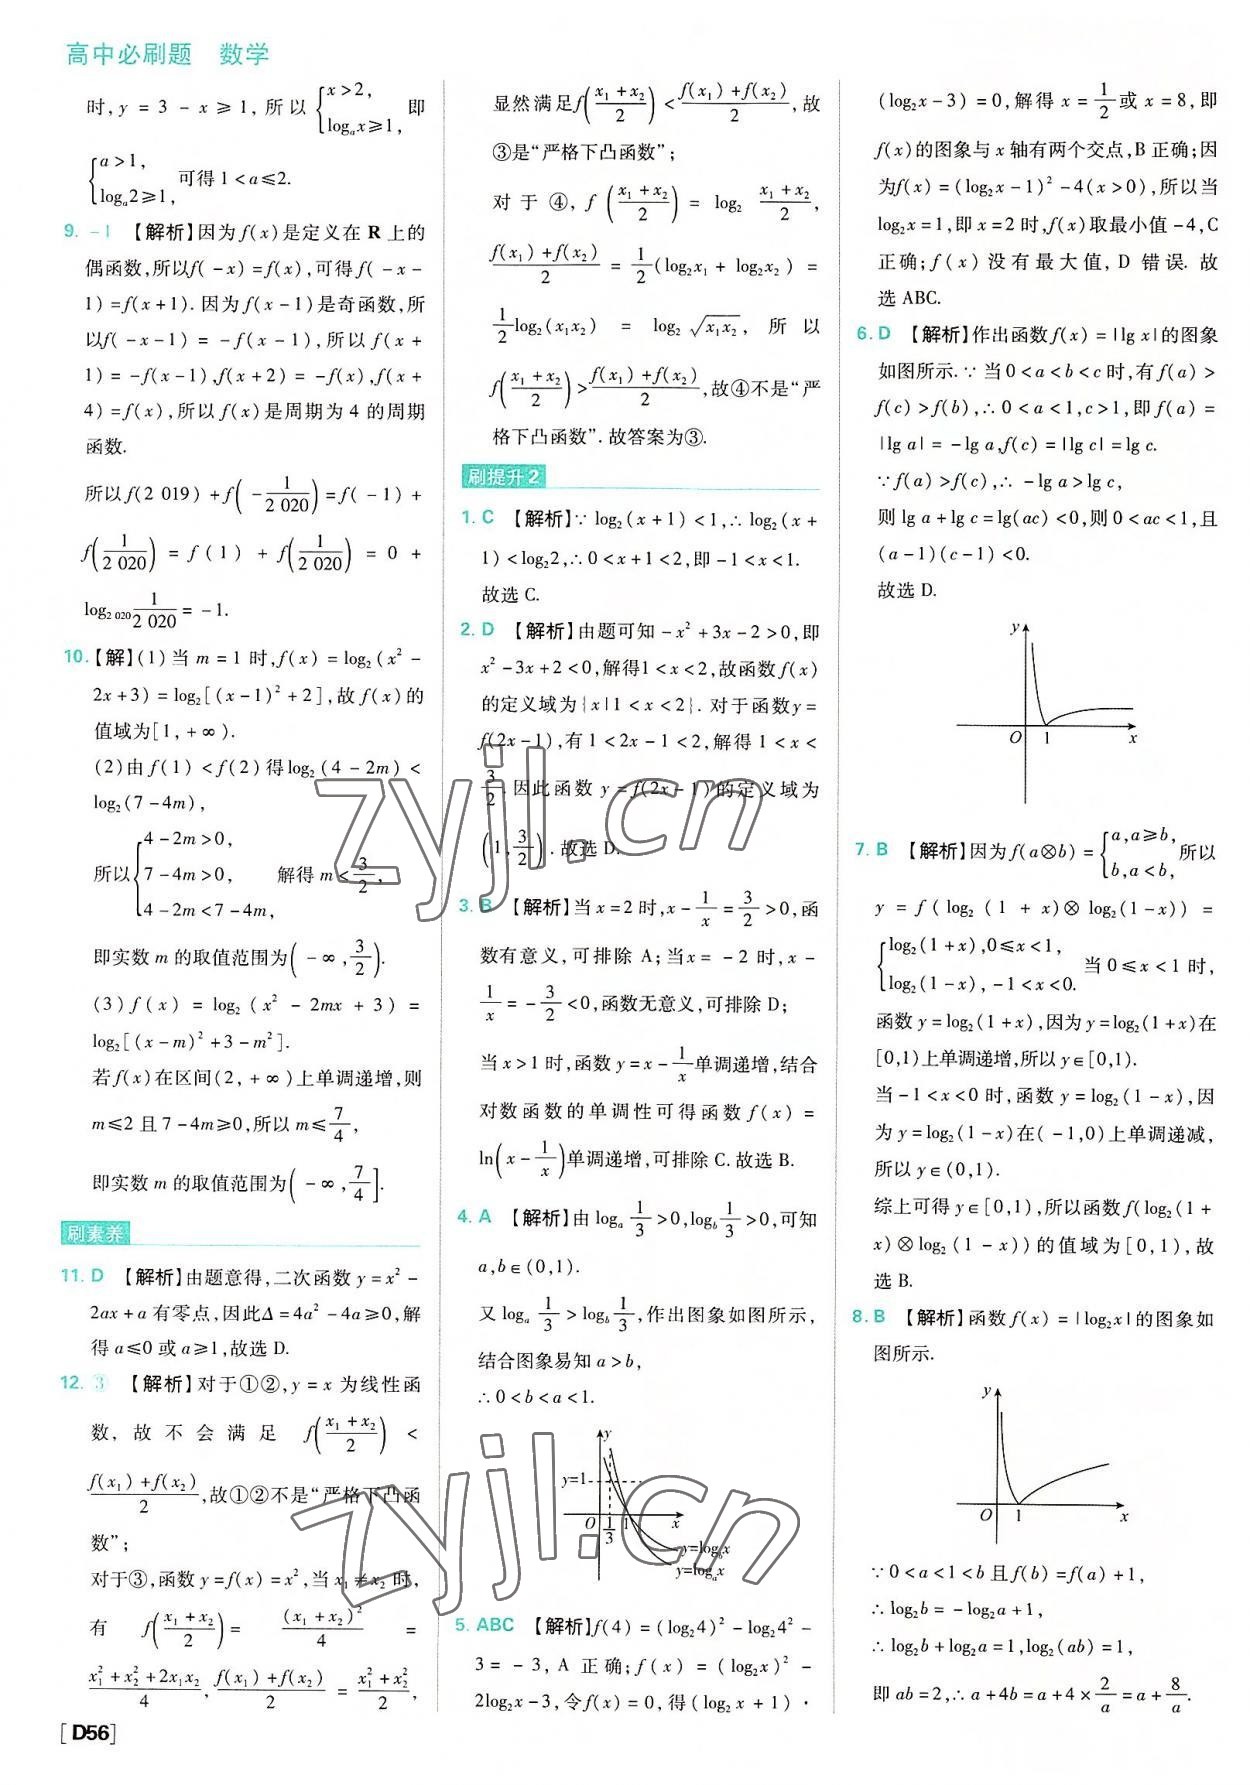 高中必刷题　数学
时, y = 3 - x ≥ 1, 所以 {x > 2, log_a x ≥ 1, 即
{a > 1, log_a 2 ≥ 1, 可得 1 < a ≤ 2.
9. -1 【解析】因为 f(x) 是定义在 R 上的
偶函数,所以f( -x) =f(x),可得f( -x-
1) =f(x+1). 因为f(x-1)是奇函数,所
以f( -x-1) = -f(x-1),所以 f(x+
1) = -f(x-1),f(x+2) = -f(x),f(x+
4) =f(x),所以f(x)是周期为 4 的周期
函数.
所以f(2 019) +f(-1/2 020)=f( -1) +
f(1/2 020) = f(1) + f(1/2 020) = 0 +
log_{2 020} 1/2 020 = -1.
10. 【解】(1)当 m = 1 时,f(x) = log₂(x² -
2x+3) = log₂[(x-1)² +2],故f(x)的
值域为[1, +∞).
(2)由 f(1) < f(2) 得log₂(4-2m) <
log₂(7-4m),
所以{4-2m>0, 7-4m>0, 4-2m<7-4m, 解得 m<3/2,
即实数 m 的取值范围为(-∞, 3/2).
(3) f(x) = log₂(x² - 2mx + 3) =
log₂[(x-m)² +3-m²].
若f(x)在区间(2, +∞)上单调递增,则
m≤2 且 7-4m≥0,所以 m≤7/4,
即实数 m 的取值范围为(-∞, 7/4].
刷素养
11. D 【解析】由题意得,二次函数 y=x² -
2ax+a 有零点,因此Δ=4a² -4a≥0,解
得 a≤0 或 a≥1,故选 D.
12. ③ 【解析】对于①②,y=x 为线性函
数, 故 不 会 满 足 f((x₁+x₂)/2) <
(f(x₁)+f(x₂))/2,故①②不是“严格下凸函
数”;
对于③,函数 y=f(x) =x²,当 x₁≠x₂ 时,
有 f((x₁+x₂)/2) = (x₁+x₂)²/4 =
(x₁²+x₂²+2x₁x₂)/4, (f(x₁)+f(x₂))/2 = (x₁²+x₂²)/2,
[D56]
显然满足f((x₁+x₂)/2)<(f(x₁)+f(x₂))/2,故
③是“严格下凸函数”;
对于 ④, f((x₁+x₂)/2) = log₂ (x₁+x₂)/2,
(f(x₁)+f(x₂))/2 = 1/2(log₂x₁ + log₂x₂) =
1/2 log₂(x₁x₂) = log₂ √(x₁x₂), 所 以
f((x₁+x₂)/2)>(f(x₁)+f(x₂))/2,故④不是“严
格下凸函数”. 故答案为③.
刷提升2
1. C 【解析】∵ log₂(x+1) <1,∴ log₂(x+
1) <log₂2,∴ 0<x+1<2,即 -1<x<1.
故选 C.
2. D 【解析】由题可知 -x² +3x-2>0,即
x² -3x+2<0,解得1<x<2,故函数f(x)
的定义域为{x|1<x<2}. 对于函数y=
f(2x-1),有 1<2x-1<2,解得 1<x<
3/2.因此函数 y=f(2x-1)的定义域为
(1, 3/2). 故选 D.
3. B 【解析】当 x=2 时,x-1/x=3/2>0,函
数有意义,可排除 A;当 x= -2 时,x-
1/x = -3/2<0,函数无意义,可排除 D;
当 x>1 时,函数 y=x-1/x单调递增,结合
对数函数的单调性可得函数 f(x) =
ln(x-1/x)单调递增,可排除 C.故选 B.
4. A 【解析】由 log_a 1/3 >0,log_b 1/3 >0,可知
a,b∈(0,1).
又 log_a 1/3 >log_b 1/3,作出图象如图所示,
结合图象易知 a>b,
∴ 0<b<a<1.
y
y=1
O 1/3 1 x
y=log_b x
y=log_a x
5. ABC 【解析】f(4) = (log₂4)² -log₂4² -
3= -3, A 正确;f(x) = (log₂x)² -
2log₂x-3,令f(x) =0,得(log₂x+1) ·
(log₂x-3) =0,解得 x=1/2或 x=8,即
f(x)的图象与 x 轴有两个交点,B 正确;因
为f(x) = (log₂x-1)² -4(x>0),所以当
log₂x=1,即 x=2 时,f(x)取最小值 -4,C
正确;f(x) 没有最大值, D 错误. 故
选 ABC.
6. D 【解析】作出函数f(x) = |lg x|的图象
如图所示.∵ 当 0<a<b<c 时,有f(a) >
f(c) >f(b),∴ 0<a<1,c>1,即f(a) =
|lg a| = -lg a,f(c) = |lg c| =lg c.
∵ f(a) >f(c),∴ -lg a>lg c,
则 lg a+lg c=lg(ac) <0,则 0<ac<1,且
(a-1)(c-1) <0.
故选 D.
y
O 1 x
7. B 【解析】因为f(a⊗b) = {a,a≥b, b,a<b, 所以
y = f(log₂(1+x)⊗ log₂(1-x)) =
{log₂(1+x),0≤x<1, log₂(1-x), -1<x<0. 当 0≤x<1 时,
函数 y=log₂(1+x),因为 y=log₂(1+x)在
[0,1)上单调递增,所以 y∈[0,1).
当 -1<x<0 时,函数 y=log₂(1-x),因
为 y=log₂(1-x)在( -1,0)上单调递减,
所以 y∈(0,1).
综上可得 y∈[0,1),所以函数f(log₂(1+
x)⊗log₂(1-x))的值域为[0,1),故
选 B.
8. B 【解析】函数 f(x) = |log₂x|的图象如
图所示.
y
O 1 x
∵ 0<a<1<b 且f(b) =f(a) +1,
∴ log₂b= -log₂a+1,
∴ log₂b+log₂a=1,log₂(ab) =1,
即 ab=2,∴ a+4b=a+4×2/a=a+8/a.
zyjl.cn
zyjl.cn